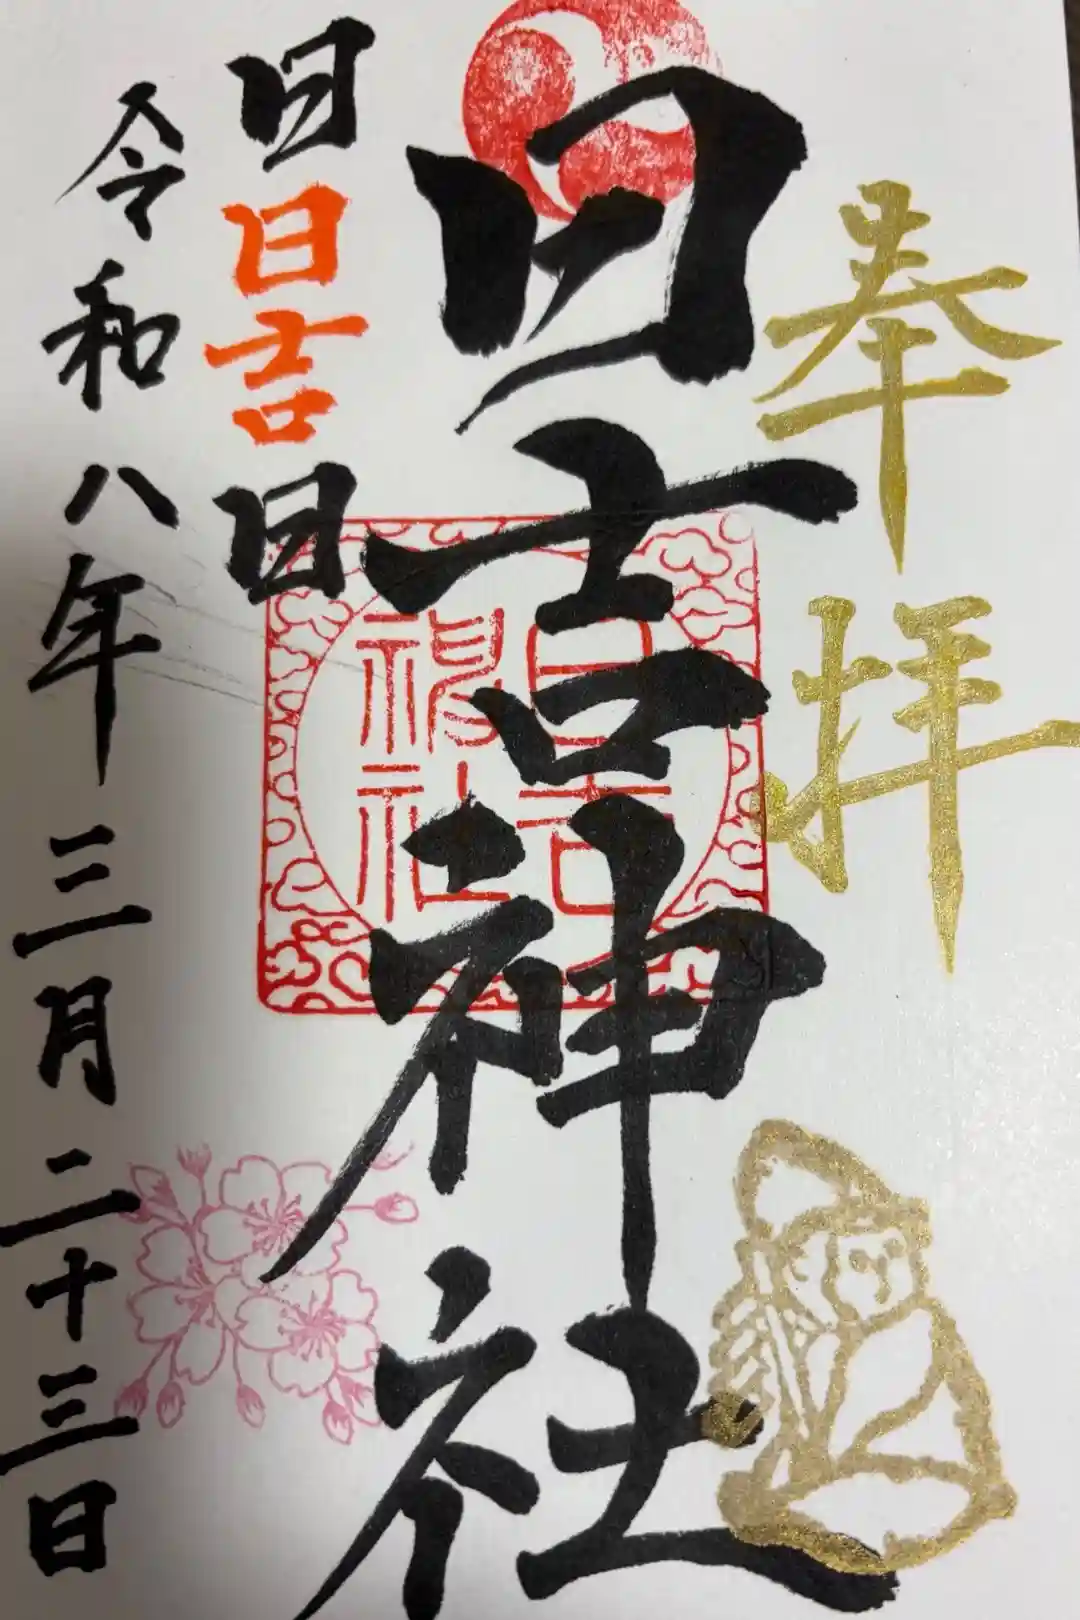 奉拝
日吉神社
日吉
神社
日日吉日
令和八年三月二十三日